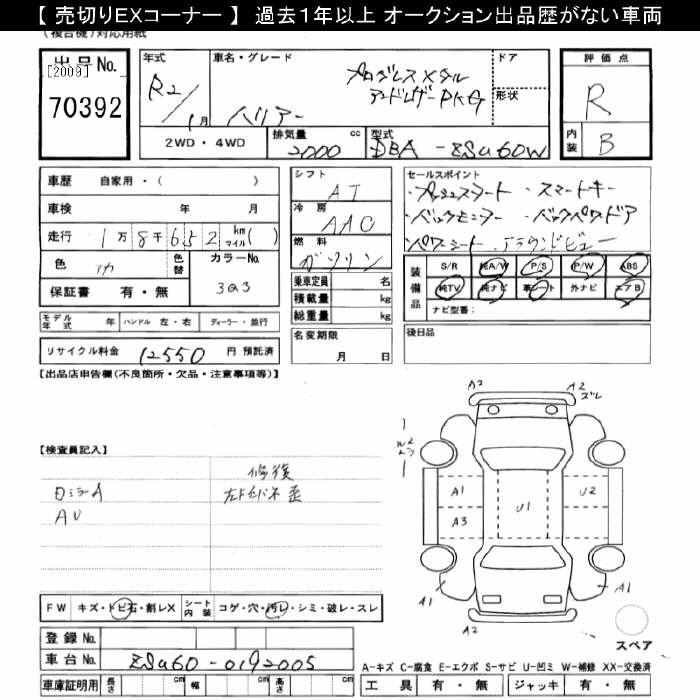 【 売切りEXコーナー 】 過去１年以上 オークション出品歴がない車両
(複合機)対応用紙
出品No.
[2009]
70392
年式
R2/1月
車名・グレード
ハリアー
プログレス メタル
アンドレザーPKG
ドア
形状
評価点
R
内装
B
2WD・4WD
排気量 cc
2000
型式
DBA-ZSU60W
車歴 自家用・( )
車検 年 月
走行 1万8千652 km マイル( )
色
色替
カラーNo.
3Q3
保証書 有・無
モデル年式 年 ハンドル 左・右 ディーラー・並行
リサイクル料金 12550 円 預託済
シフト
AT
冷房
AAC
燃料
ガソリン
乗車定員 名
積載量 kg
総重量 kg
名変期限
月 日
セールスポイント
・プッシュスタート ・スマートキー
・バックモニター ・バックパワードア
・パワーシート ・アラウンドビュー
装備品
S/R 純A/W P/S P/W ABS
純TV 純ナビ 革シート 外ナビ エアB
ナビ型番：
後日品
【出品店申告欄(不良箇所・欠品・注意事項等)】
【検査員記入】
ロミラーA
AU
修復
A2
A2
ズレ
A1
A3
U1
U2
A1
A1
A2
スペア
FW キズ・トビ石・割レX シート内装 コゲ・穴・汚レ・シミ・破レ・スレ
登録No.
車台No. ZSU60-0192005
車庫証明用 長さ cm 幅 cm 高さ cm
A-キズ C-腐食 E-エクボ S-サビ U-凹ミ W-補修 XX-交換済
工具 有・無 ジャッキ 有・無